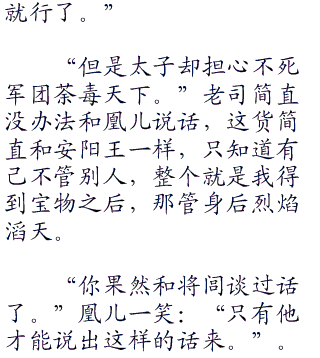 就行了。”
“但是太子却担心不死
军团荼毒天下。”老司简直
没办法和凰儿说话，这货简
直和安阳王一样，只知道有
己不管别人，整个就是我得
到宝物之后，那管身后烈焰
滔天。
“你果然和将闾谈过话
了。”凰儿一笑：“只有他
才能说出这样的话来。”。